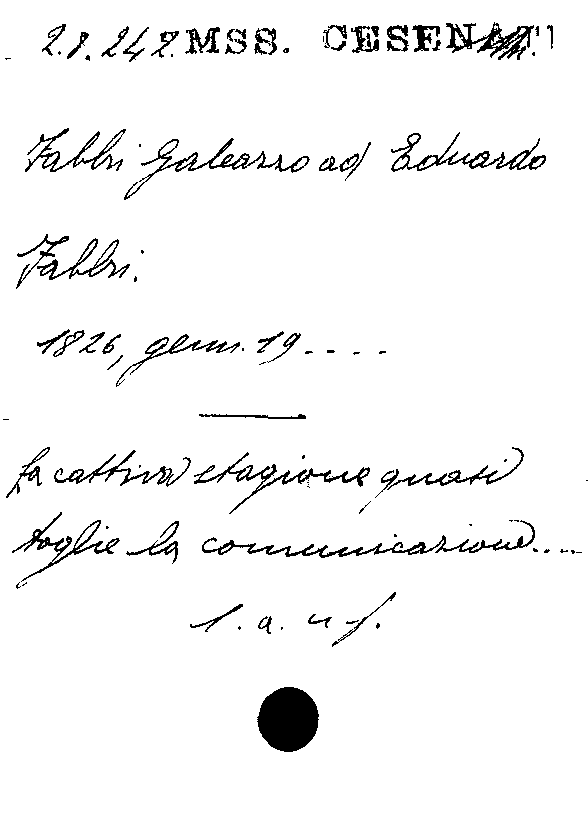 2.8.248. MSS. CESENATI
Fabbri Galeazzo ad Eduardo
Fabbri.
1826, genn. 19....
La cattiva stagione quasi
toglie la comunicazione....
l. a. u f.